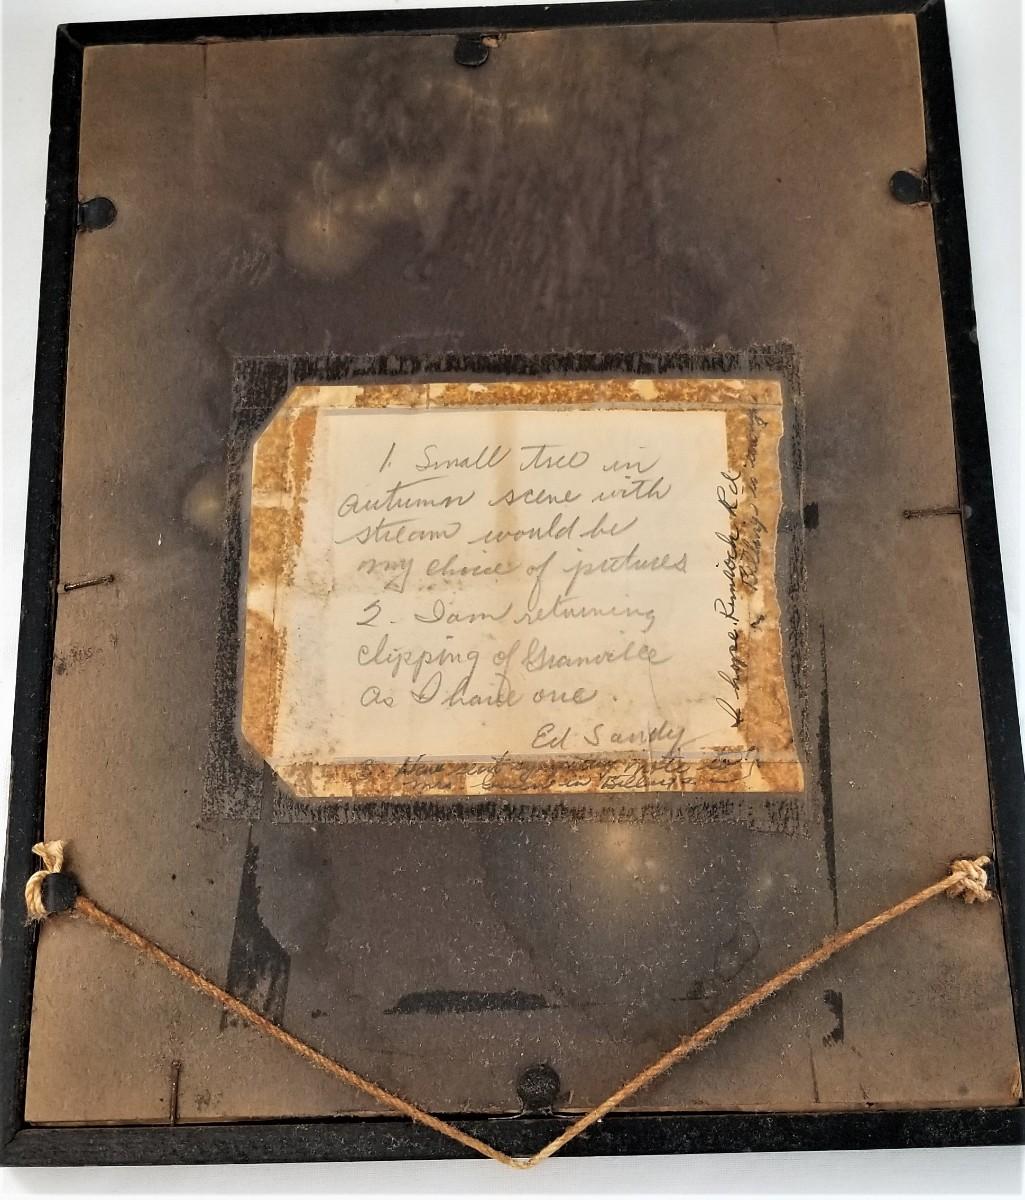 1. Small tree in
autumn scene with
stream would be
my choice of pictures
2. I am returning
clipping of Granville
as I have one.
Ed Sandy
3. Have sent
Mrs. in
I hope Rd.
is